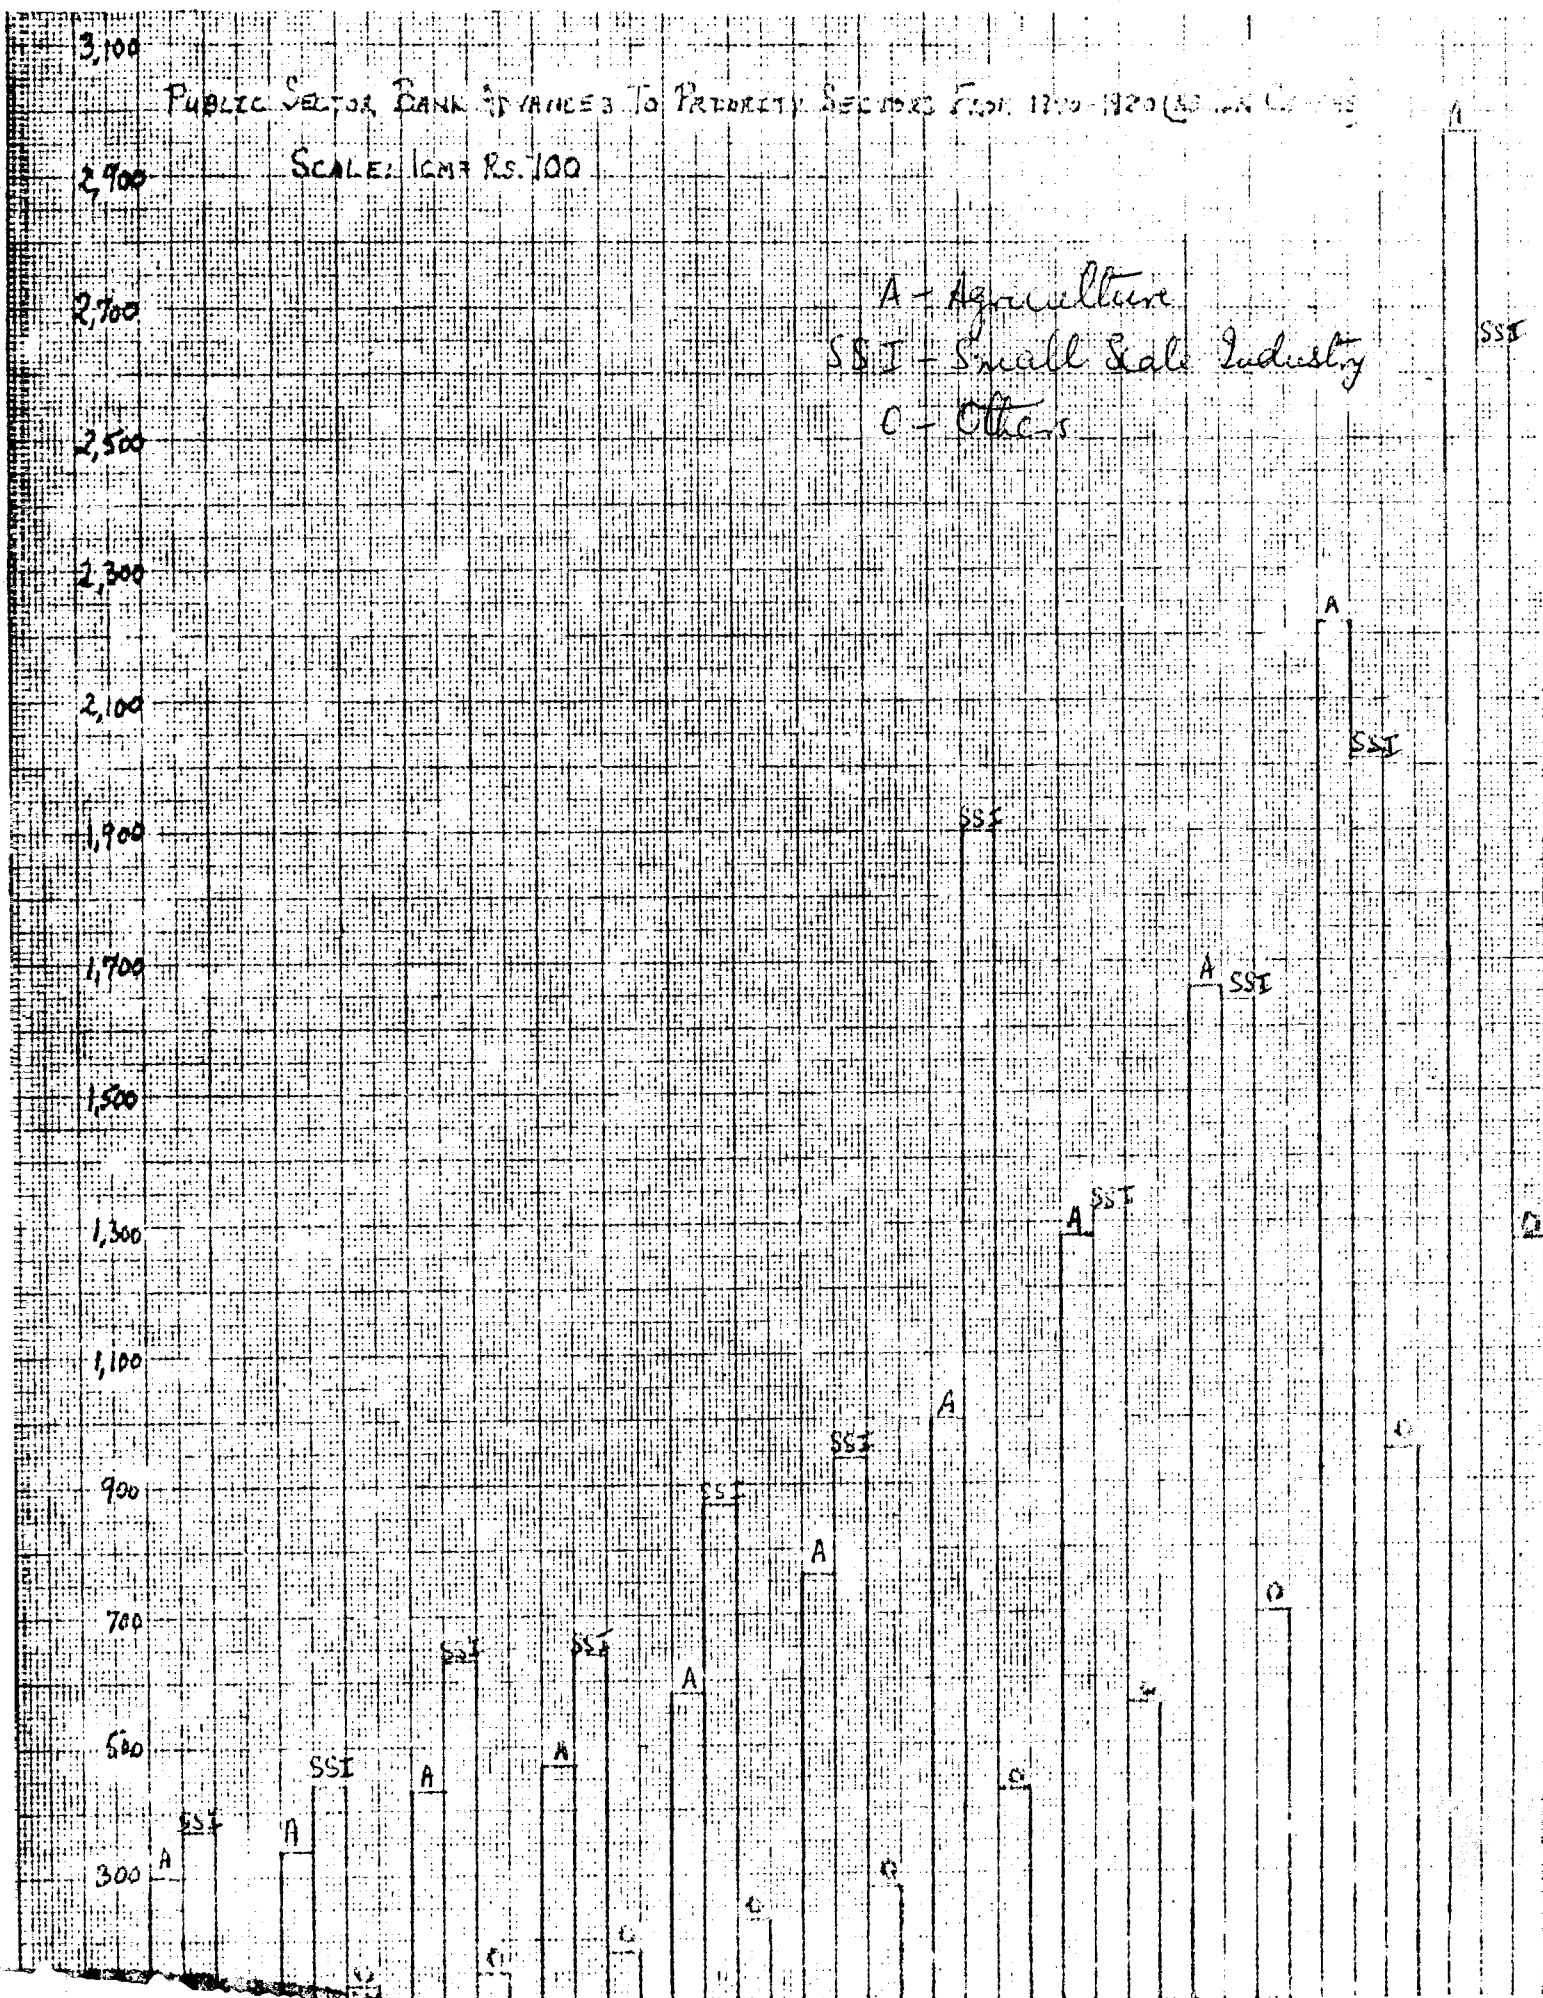 3,100
PUBLIC SECTOR BANK ADVANCES TO PRIORITY SECTORS FROM
SCALE: 1CM= RS. 100
2,900
A - Agriculture
SSI - Small Scale Industry
O - Others
2,700
2,500
2,300
2,100
1,900
1,700
1,500
1,300
1,100
900
700
500
300
A
SSI
A
SSI
O
A
SSI
O
A
SSI
O
A
SSI
O
A
SSI
O
A
SSI
O
A
SSI
A
SSI
O
A
SSI
O
A
SSI
O